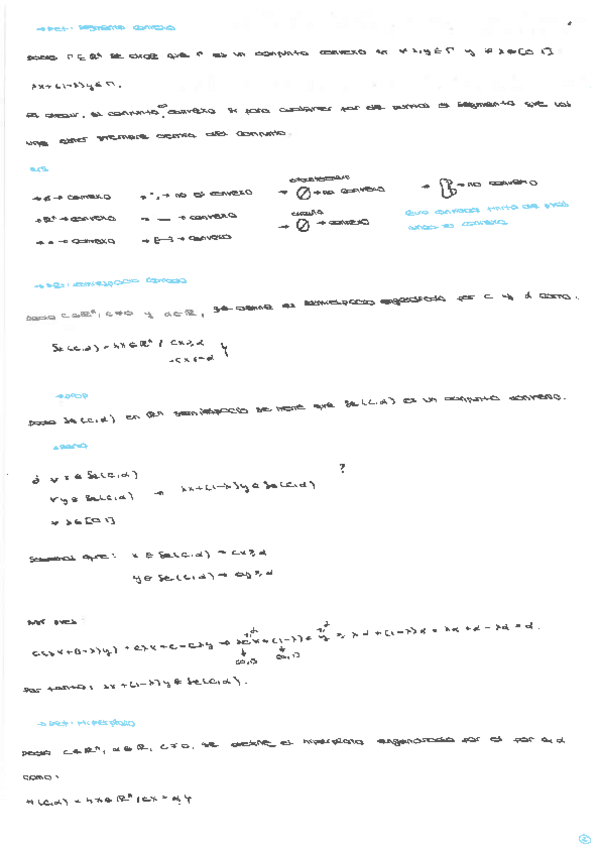 → Def: Segmento convexo
Dado Γ ⊆ ℝⁿ se dice que Γ es un conjunto convexo si ∀ x,y ∈ Γ y ∀ λ ∈ [0,1]
λx+(1-λ)y ∈ Γ.
Es decir, el conjunto es convexo si para cualquier par de puntos el segmento que los
une está siempre dentro del conjunto.
→ ∅ → convexo → → no es convexo → → no convexo → → no convexo
→ ℝⁿ → convexo → — → convexo círculo → → convexo
→ • → convexo → [—] → convexo
→ Def: semiespacio cerrado
Dado c ∈ ℝⁿ, c≠0 y α ∈ ℝ, se define el semiespacio engendrado por c y α como:
Se(c,α) = {x ∈ ℝⁿ / cx ≥ α
-cx ≤ -α }
→ Prop
Dado Se(c,α) en ℝⁿ semiespacio se tiene que Se(c,α) es un conjunto convexo.
Demo
¿ ∀ x ∈ Se(c,α)
∀ y ∈ Se(c,α) → λx+(1-λ)y ∈ Se(c,α) ?
∀ λ ∈ [0,1]
Sabemos que: x ∈ Se(c,α) → cx ≥ α
y ∈ Se(c,α) → cy ≥ α
Así pues
c(λx+(1-λ)y) = cλx + c - cλy → λcx + (1-λ)cy ≥ λα + (1-λ)α = λα + α - λα = α.
Por tanto, λx+(1-λ)y ∈ Se(c,α).
→ Def: Hiperplano
Dado c ∈ ℝⁿ, α ∈ ℝ, c≠0, se define el hiperplano engendrado por el par c,α
como:
H(c,α) = {x ∈ ℝⁿ / cx = α}
2